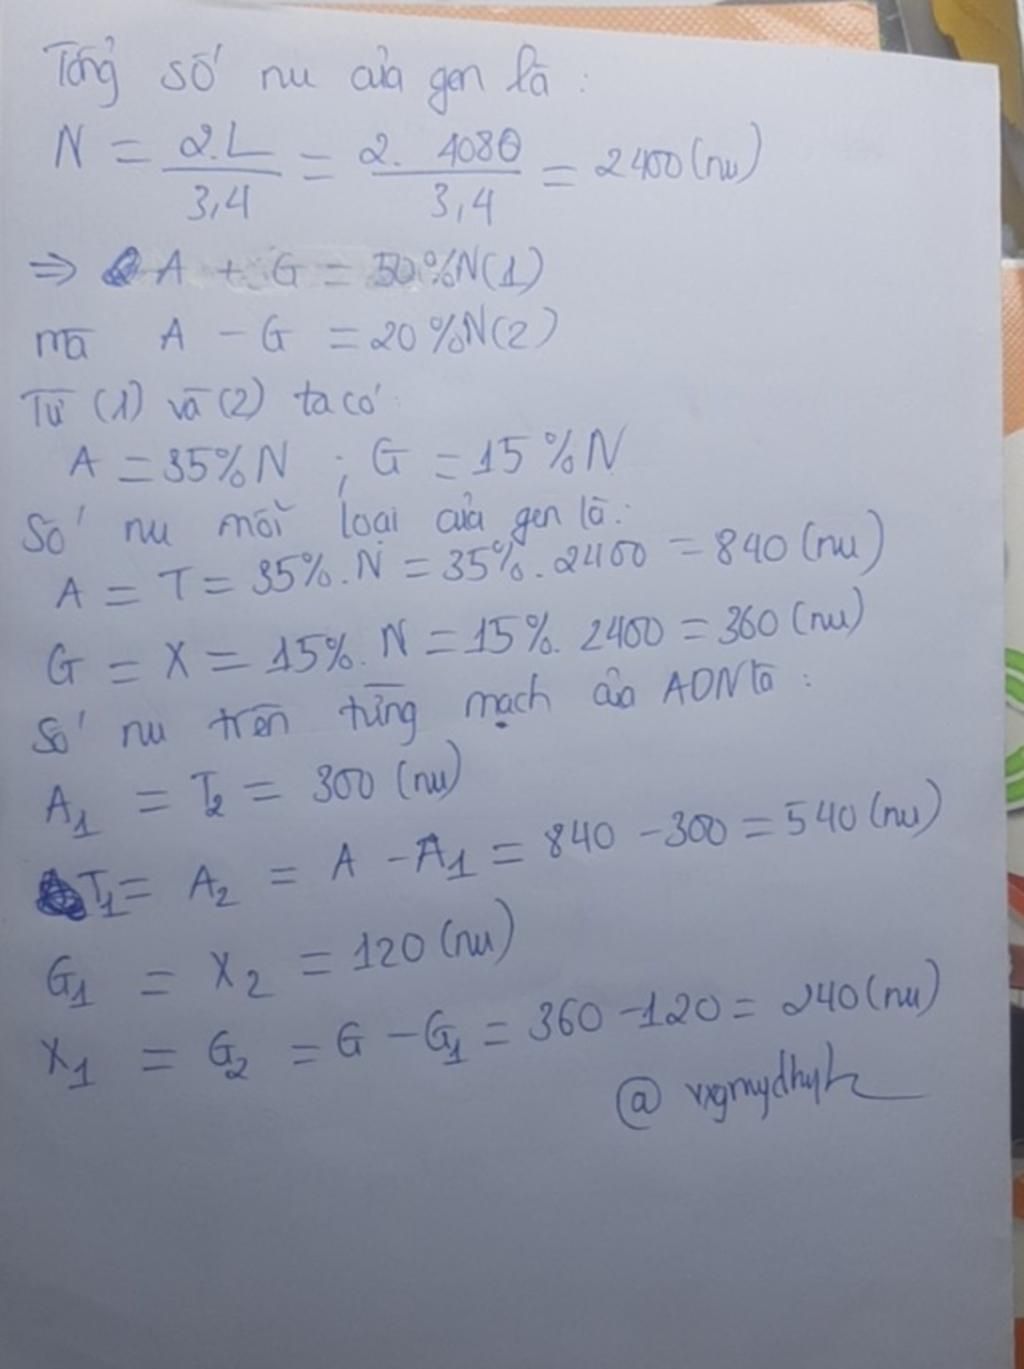 Tổng số nu của gen là :
N = 2.L / 3,4 = 2. 4080 / 3,4 = 2400 (nu)
=> A + G = 50%N(1)
mà A - G = 20%N(2)
Từ (1) và (2) ta có:
A = 35%N ; G = 15%N
Số nu mỗi loại của gen là:
A = T = 35%.N = 35%.2400 = 840 (nu)
G = X = 15%.N = 15%. 2400 = 360 (nu)
Số nu trên từng mạch của ADN là :
A1 = T2 = 300 (nu)
T1 = A2 = A - A1 = 840 - 300 = 540 (nu)
G1 = X2 = 120 (nu)
X1 = G2 = G - G1 = 360 - 120 = 240 (nu)